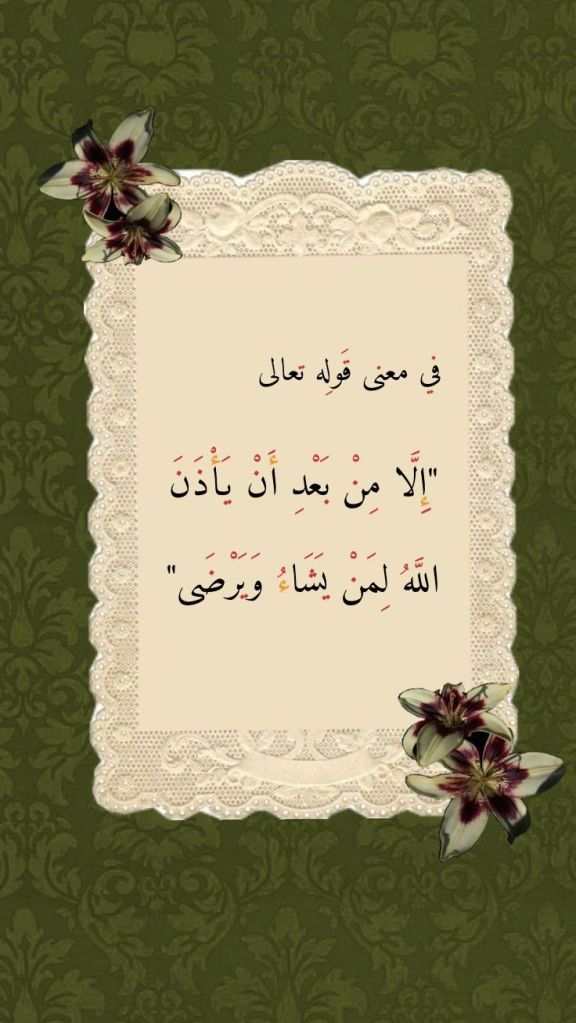 في معنى قَولِه تعالى
"إِلَّا مِنْ بَعْدِ أَنْ يَأْذَنَ
اللَّهُ لِمَنْ يَشَاءُ وَيَرْضَى"